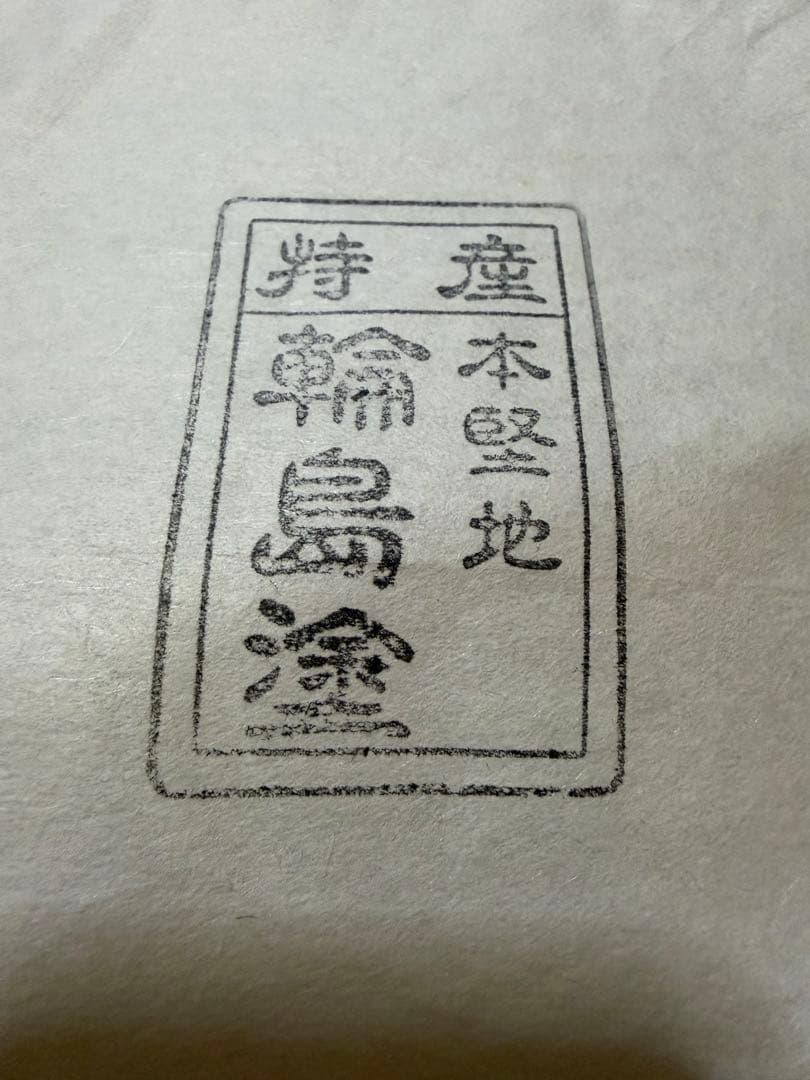 特産
本堅地
輪島塗